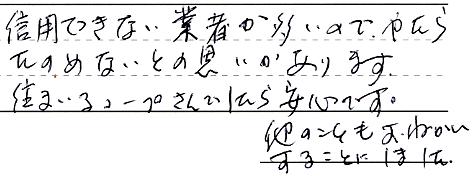 信用できない業者が多いので、やたら
たのめないとの思いがあります。
住まいるーぷさんでしたら安心です。
他のこともおねがい
することにしました。